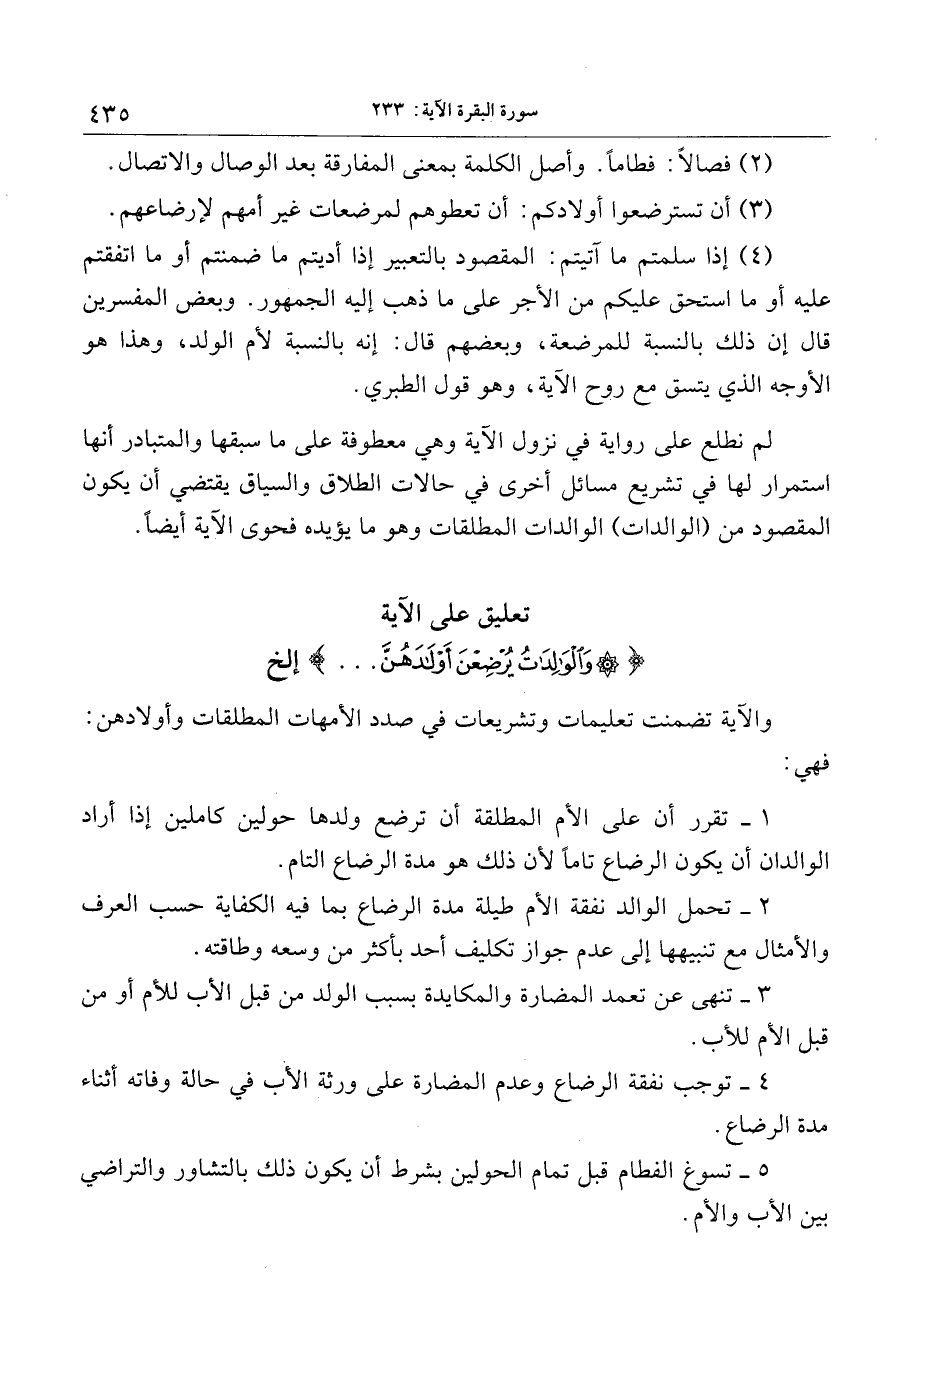 سورة البقرة الآية: ٢٣٣ ٤٣٥
(٢) فصالاً: فطاماً. وأصل الكلمة بمعنى المفارقة بعد الوصال والاتصال.
(٣) أن تسترضعوا أولادكم: أن تعطوهم لمرضعات غير أمهم لإرضاعهم.
(٤) إذا سلمتم ما آتيتم: المقصود بالتعبير إذا أديتم ما ضمنتم أو ما اتفقتم
عليه أو ما استحق عليكم من الأجر على ما ذهب إليه الجمهور. وبعض المفسرين
قال إن ذلك بالنسبة للمرضعة، وبعضهم قال: إنه بالنسبة لأم الولد، وهذا هو
الأوجه الذي يتسق مع روح الآية، وهو قول الطبري.
لم نطلع على رواية في نزول الآية وهي معطوفة على ما سبقها والمتبادر أنها
استمرار لها في تشريع مسائل أخرى في حالات الطلاق والسياق يقتضي أن يكون
المقصود من (الوالدات) الوالدات المطلقات وهو ما يؤيده فحوى الآية أيضاً.
تعليق على الآية
﴿ ۞ وَٱلْوَٰلِدَٰتُ يُرْضِعْنَ أَوْلَٰدَهُنَّ . . . ﴾ إلخ
والآية تضمنت تعليمات وتشريعات في صدد الأمهات المطلقات وأولادهن:
فهي:
١ ـ تقرر أن على الأم المطلقة أن ترضع ولدها حولين كاملين إذا أراد
الوالدان أن يكون الرضاع تاماً لأن ذلك هو مدة الرضاع التام.
٢ ـ تحمل الوالد نفقة الأم طيلة مدة الرضاع بما فيه الكفاية حسب العرف
والأمثال مع تنبيهها إلى عدم جواز تكليف أحد بأكثر من وسعه وطاقته.
٣ ـ تنهى عن تعمد المضارة والمكايدة بسبب الولد من قبل الأب للأم أو من
قبل الأم للأب.
٤ ـ توجب نفقة الرضاع وعدم المضارة على ورثة الأب في حالة وفاته أثناء
مدة الرضاع.
٥ ـ تسوغ الفطام قبل تمام الحولين بشرط أن يكون ذلك بالتشاور والتراضي
بين الأب والأم.